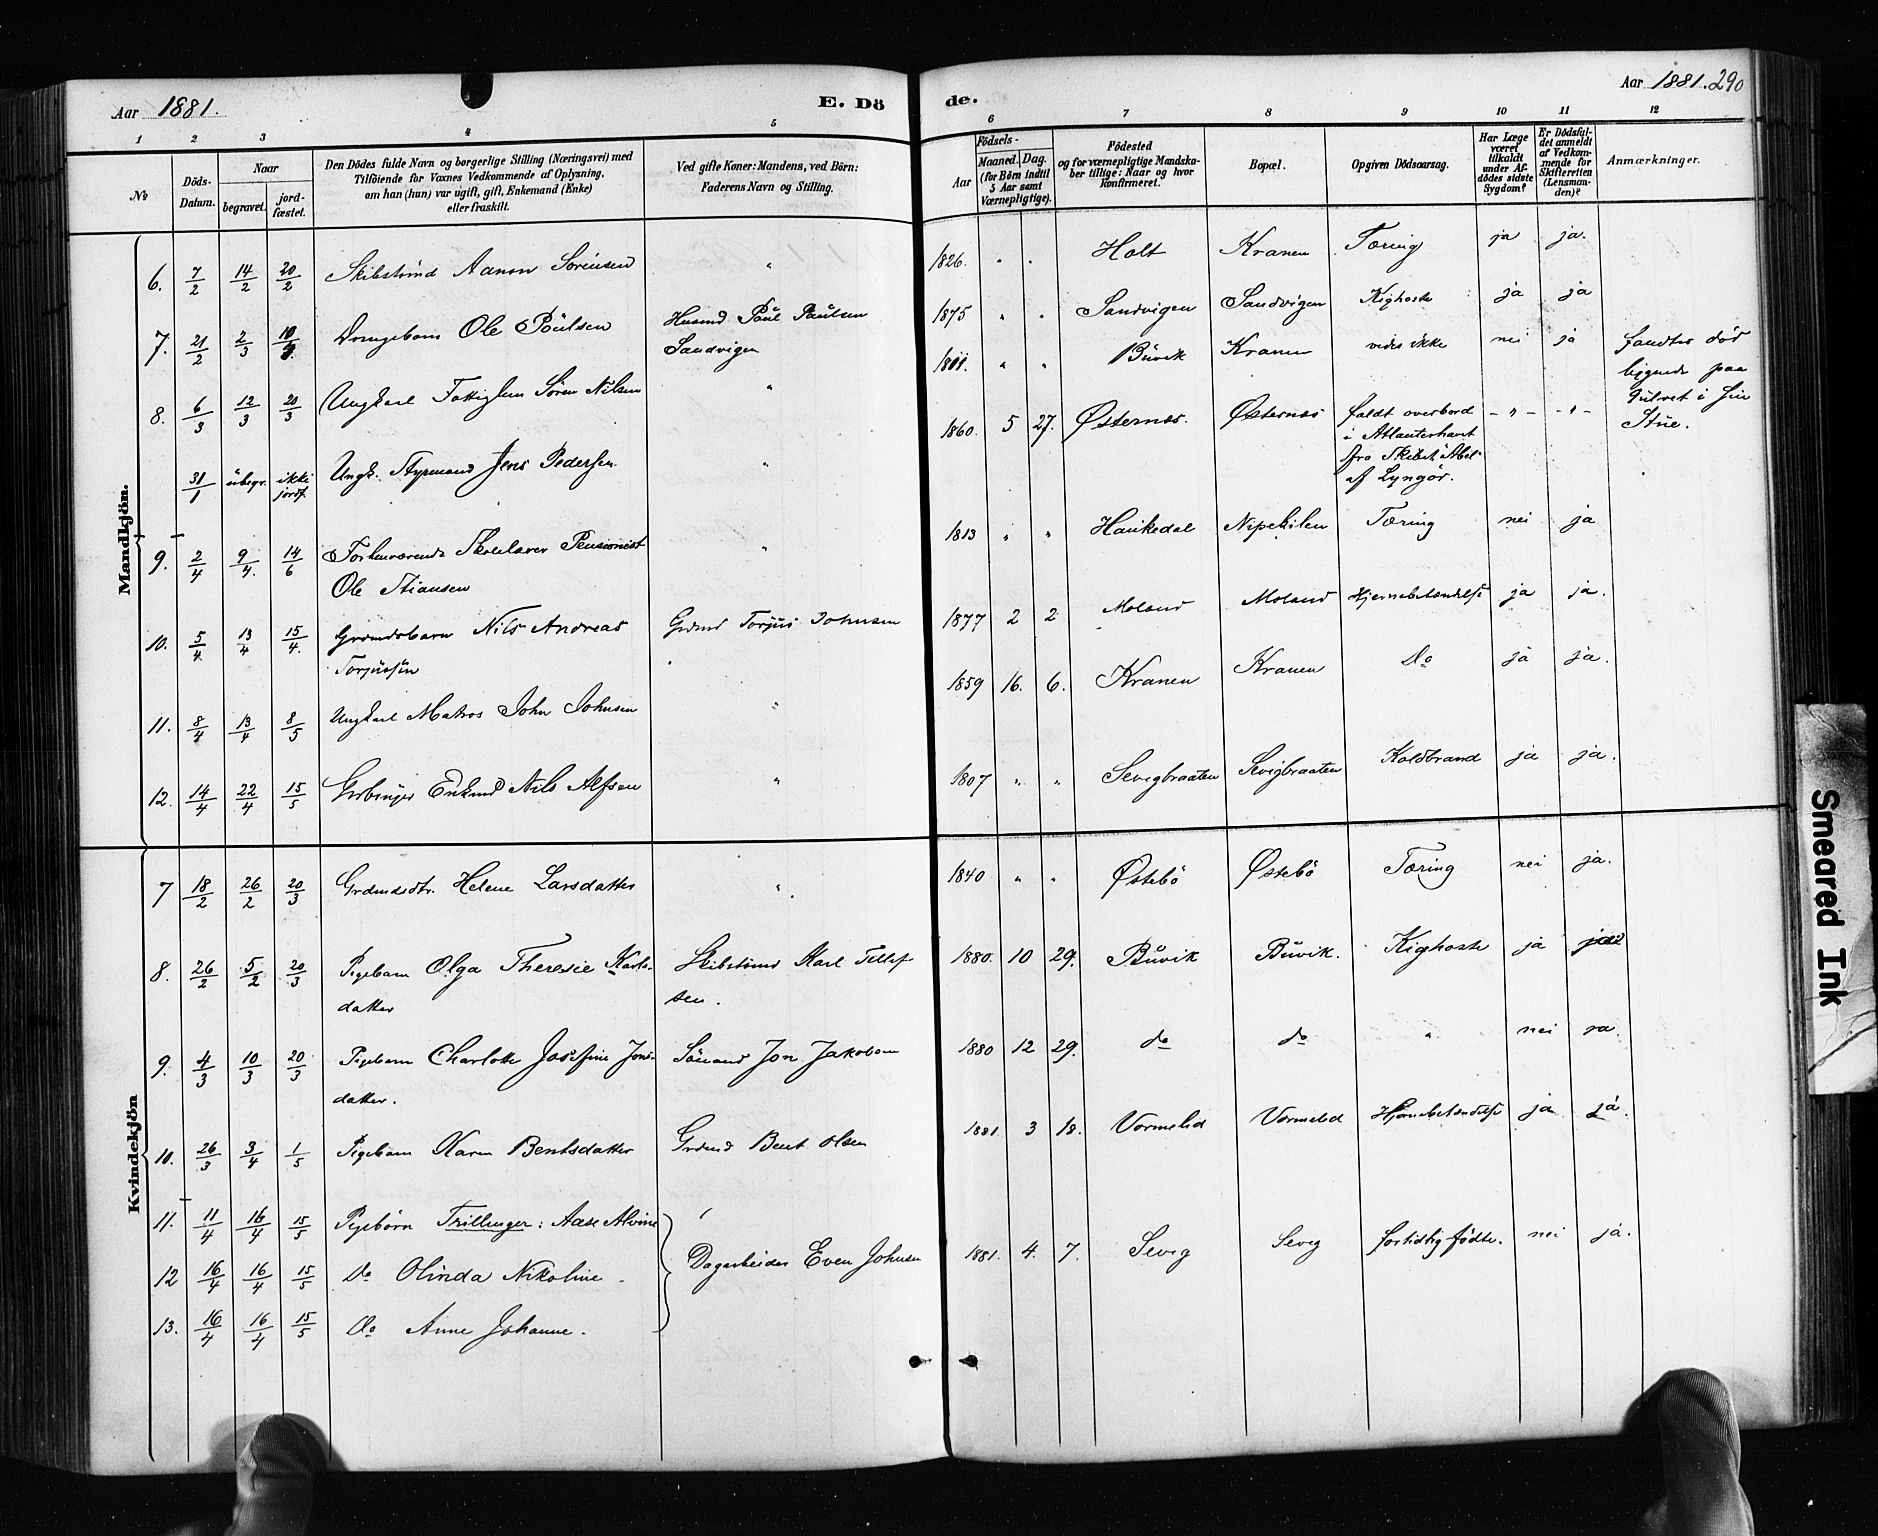 Aar 1881.
E. Dö
de.
Aar 1881. 290
1 2 3 4 5
6 7 8 9 10 11 12
No
Döds-Datum.
Naar
begravet. jord-fæstet.
Den Dödes fulde Navn og borgerlige Stilling (Næringsvei) med
Tilföiende for Voxnes Vedkommende af Oplysning,
om han (hun) var ugift, gift, Enkemand (Enke)
eller fraskilt.
Ved gifte Koner: Mandens, ved Börn:
Faderens Navn og Stilling.
Födsels-
Aar
Maaned. Dag.
(for Börn indtil
5 Aar samt
Værnepligtige).
Födested
og for værnepligtige Mandska-
ber tillige: Naar og hvor
konfirmeret.
Bopæl.
Opgiven Dödsaarsag.
Har Læge
været
tilkaldt
under Af-
dödes sidste
Sygdom?
Er Dödsful-
det anmeldt
af Vedkom-
mende for
Skifteretten
(Lensman-
den)?
Anmærkninger.
Mandkjön.
6. 7/2 14/2 20/2 Skibstömd Aanon Sörensen " 1826. " " Holt Kranen Tæring ja ja.
7. 21/2 2/3 Drengebarn Ole Pöulsen Husmd Paul Paulsen 1875 " " Sandvigen Sandvigen Kighoste ja ja
Sandvigen
8. 6/3 12/3 20/3 Ungkarl Fattiglem Sören Nilsen " " " Buvik Kranen vides ikke nei ja fandtes död
liggende paa
Gulvet i sin
Stue.
31/1 ubegr. ikke jordf. Ungk. Styrmand Jens Pedersen " 1860. 5 27. Østernes. Østernes faldt overbord - " - - " -
i Atlanterhavet
fra Skibet Abel
af Lyngör.
9. 2/4 9/4. 14/6 Forhenværende Skolelærer Pensionist " 1813 " " Haukedal Nipekilen Tæring nei ja
Ole Stiansen
10. 5/4 13/4 15/4. Grdmdsbarn Nils Andreas Grdmd Torjus Johnsen 1877 2 2 Moland Moland Hjernebetændelse ja ja.
Torjussen
11. 8/4 13/4 8/5 Ungkarl Matros John Johnsen " 1859 16. 6. Kranen Kranen Do ja ja.
12. 14/4 22/4 15/5 Enkmd Nils Alfsen " 1807 " " Sevigbraaten Sevigbraaten Koldbrand ja ja.
Kvindekjön
7 18/2 26/2 20/3 Grdmdsdtr. Helene Larsdatter " 1840 " " Østebö Østebö Tæring nei ja.
8. 26/2 5/2 20/3 Pigebarn Olga Theresie Karls- Skibstömd Karl Tellef 1880. 10 29. Buvik Buvik. Kighoste ja
datter sen.
9. 4/3 10/3 20/3 Pigebarn Charlotte Josefine Jons- Sömand Jon Jakobsen 1880 12 29. do do " nei ja.
datter.
10. 26/3 3/4 1/5 Pigebarn Karen Bentsdatter Grdmd Bent Olsen 1881. 3 18. Vormelid Vormelid Hjernebetændelse ja ja.
11. 11/4 16/4 15/5 Pigebörn Trillinger: Aase Alvine
12 16/4 16/4 15/5 Do Olinda Nikoline. Dagarbeider Even Johnsen 1881. 4. 7. Sevig Sevig fortidlig födte. nei ja.
13. 16/4 16/4 15/5 Do Anne Johanne.
Smeared Ink